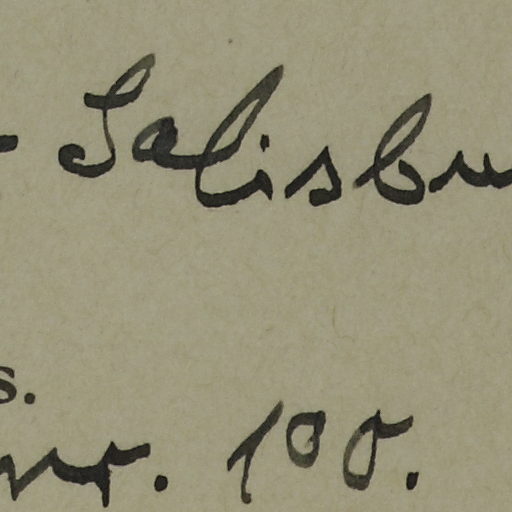 - Salisbu
s.
nr. 100.